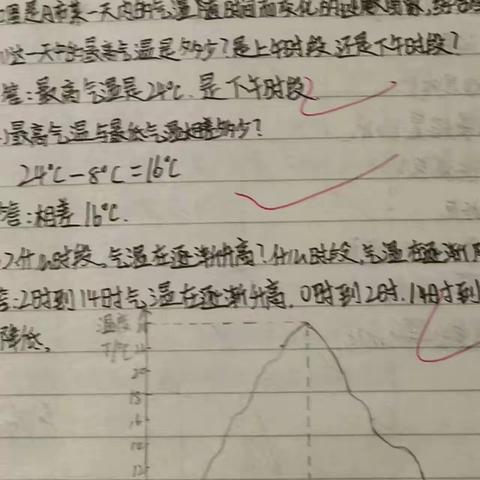 里是A市某一天内的气温随时间而变化的
这一天中的最高气温是多少?是上午时段还是下午时段?
答:最高气温是24℃.是下午时段
最高气温与最低气温相差多少?
24℃-8℃=16℃
答:相差16℃.
什么时段,气温在逐渐升高?什么时段,气温在逐渐
答:2时到14时气温在逐渐升高.0时到2时.14时到
降低,
温度
T/℃
20
18
16
12